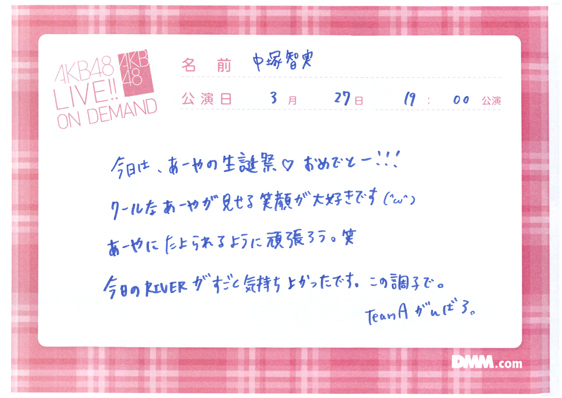 AKB48
LIVE!!
ON DEMAND
AKB
48
名前 中塚智実
公演日 3月 27日 19:00 公演
今日は、あーやの生誕祭♡おめでとー!!!
クールなあーやが見せる笑顔が大好きです(^ω^)
あーやにたよられるように頑張ろう。笑
今日のRIVERがすごく気持ちよかったです。この調子で。
TeamAがんばろ。
DMM.com